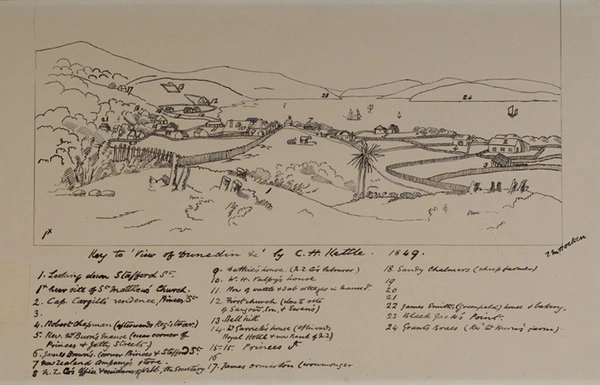 Key to 'View of Dunedin &c' by C. H. Kettle. 1849.
1. Looking down Stafford St.
1x rear site of St Matthew's Church.
2. Cap. Cargill's residence, Princes St
3.
4. Robert Chapman (afterwards Registrar)
5. Rev. Mr Burns's manse (near corner of
Princes & Jetty Streets)
6. James Brown's. (corner Princes & Stafford St
7 New Zealand Company's store.
8 N. Z. Co's Office & residence of the Secretary
9. house (N. Z. Co's labourer)
10. W. H. Valpy's house
11. Row of wattle & dab cottages in
12. First church (also to site
of Sargood, Son, & Ewens)
13. Bell hill
14. Mr house (afterwards
Royal Hotel & now Bank of N.Z)
15-15. Princes St
16
17. James ironmonger
18. Sandy Chalmers (sheep farmer)
19
20
21
22 James Smith's house & bakery.
23 Black Jack's Point.
24 Grants Braes (Rev Mr Burns's farm).
T. M. Hocken